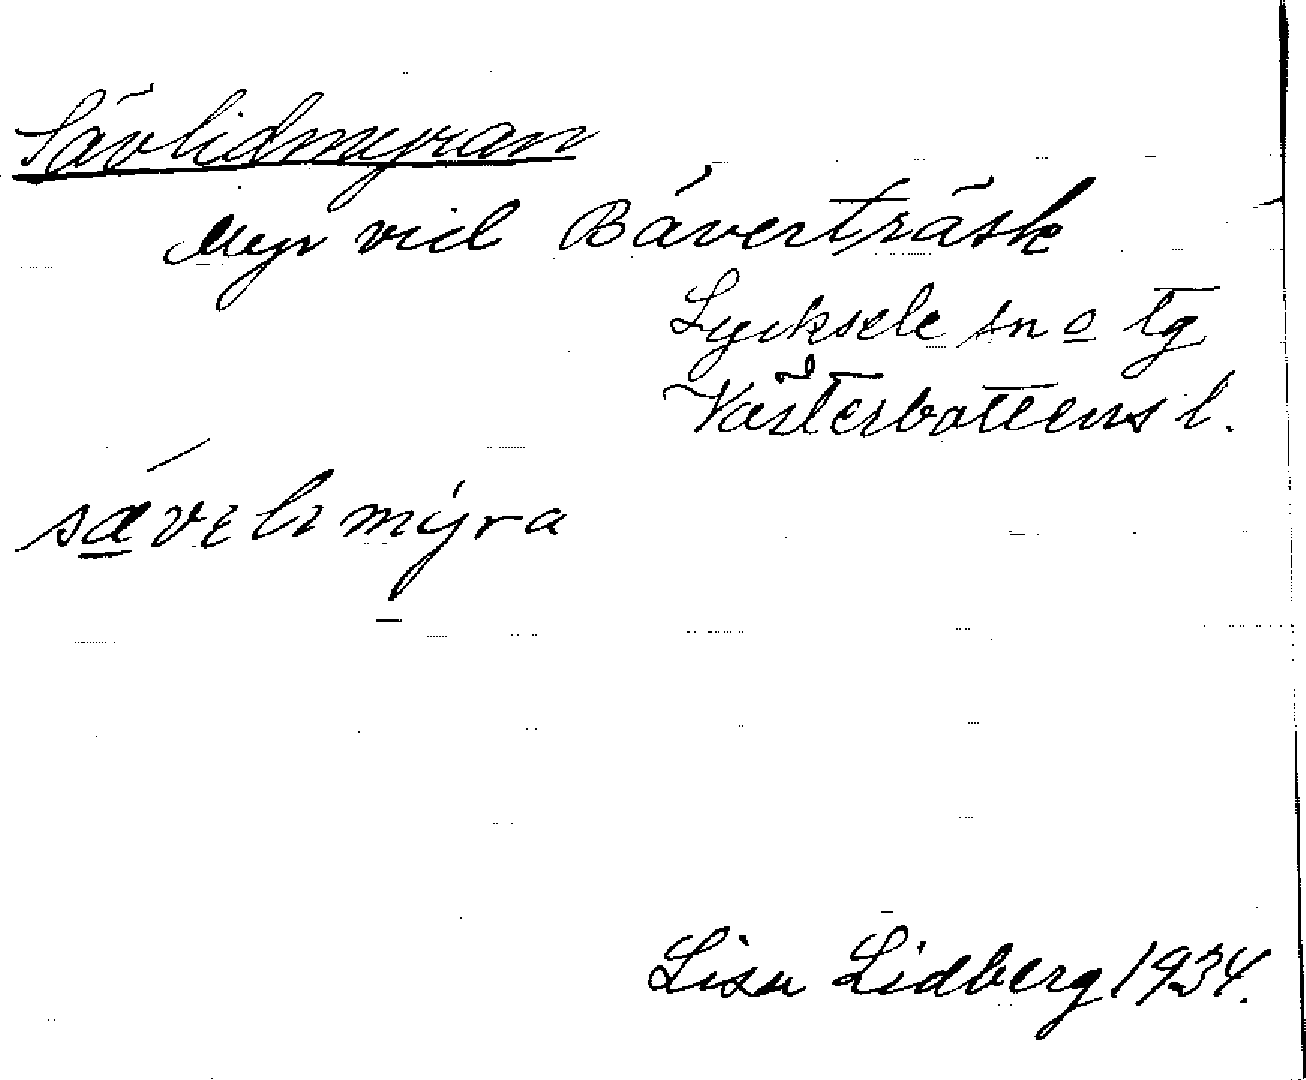 Sävlidmyran
Myr vid Bäverträsk
Lycksele sn o tg
Västerbottens l.
Lisa Lidberg 1934.